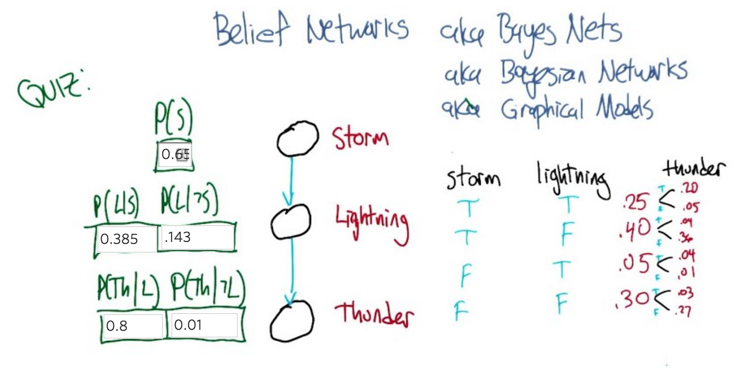 Belief Networks aka Bayes Nets
aka Bayesian Networks
aka Graphical Models
QUIZ:
P(S)
0.65
P(L|S) P(L|¬S)
0.385 .143
P(Th|L) P(Th|¬L)
0.8 0.01
Storm
Lightning
Thunder
storm lightning thunder
T T .25 < T .20
F .05
T F .40 < T .04
F .36
F T .05 < T .04
F .01
F F .30 < T .03
F .27